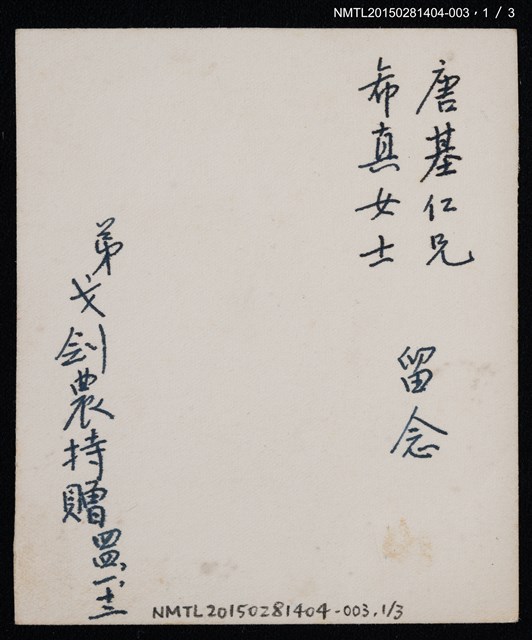 NMTL20150281404-003,1/3
唐基仁兄
希真女士
留念
弟戈剑農持贈四四、一、十三
NMTL20150281404-003.1/3